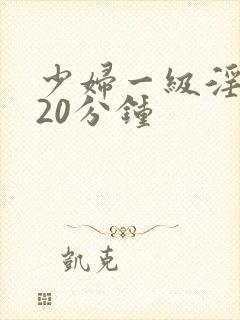 少婦一級淫
20分鍾
凱克